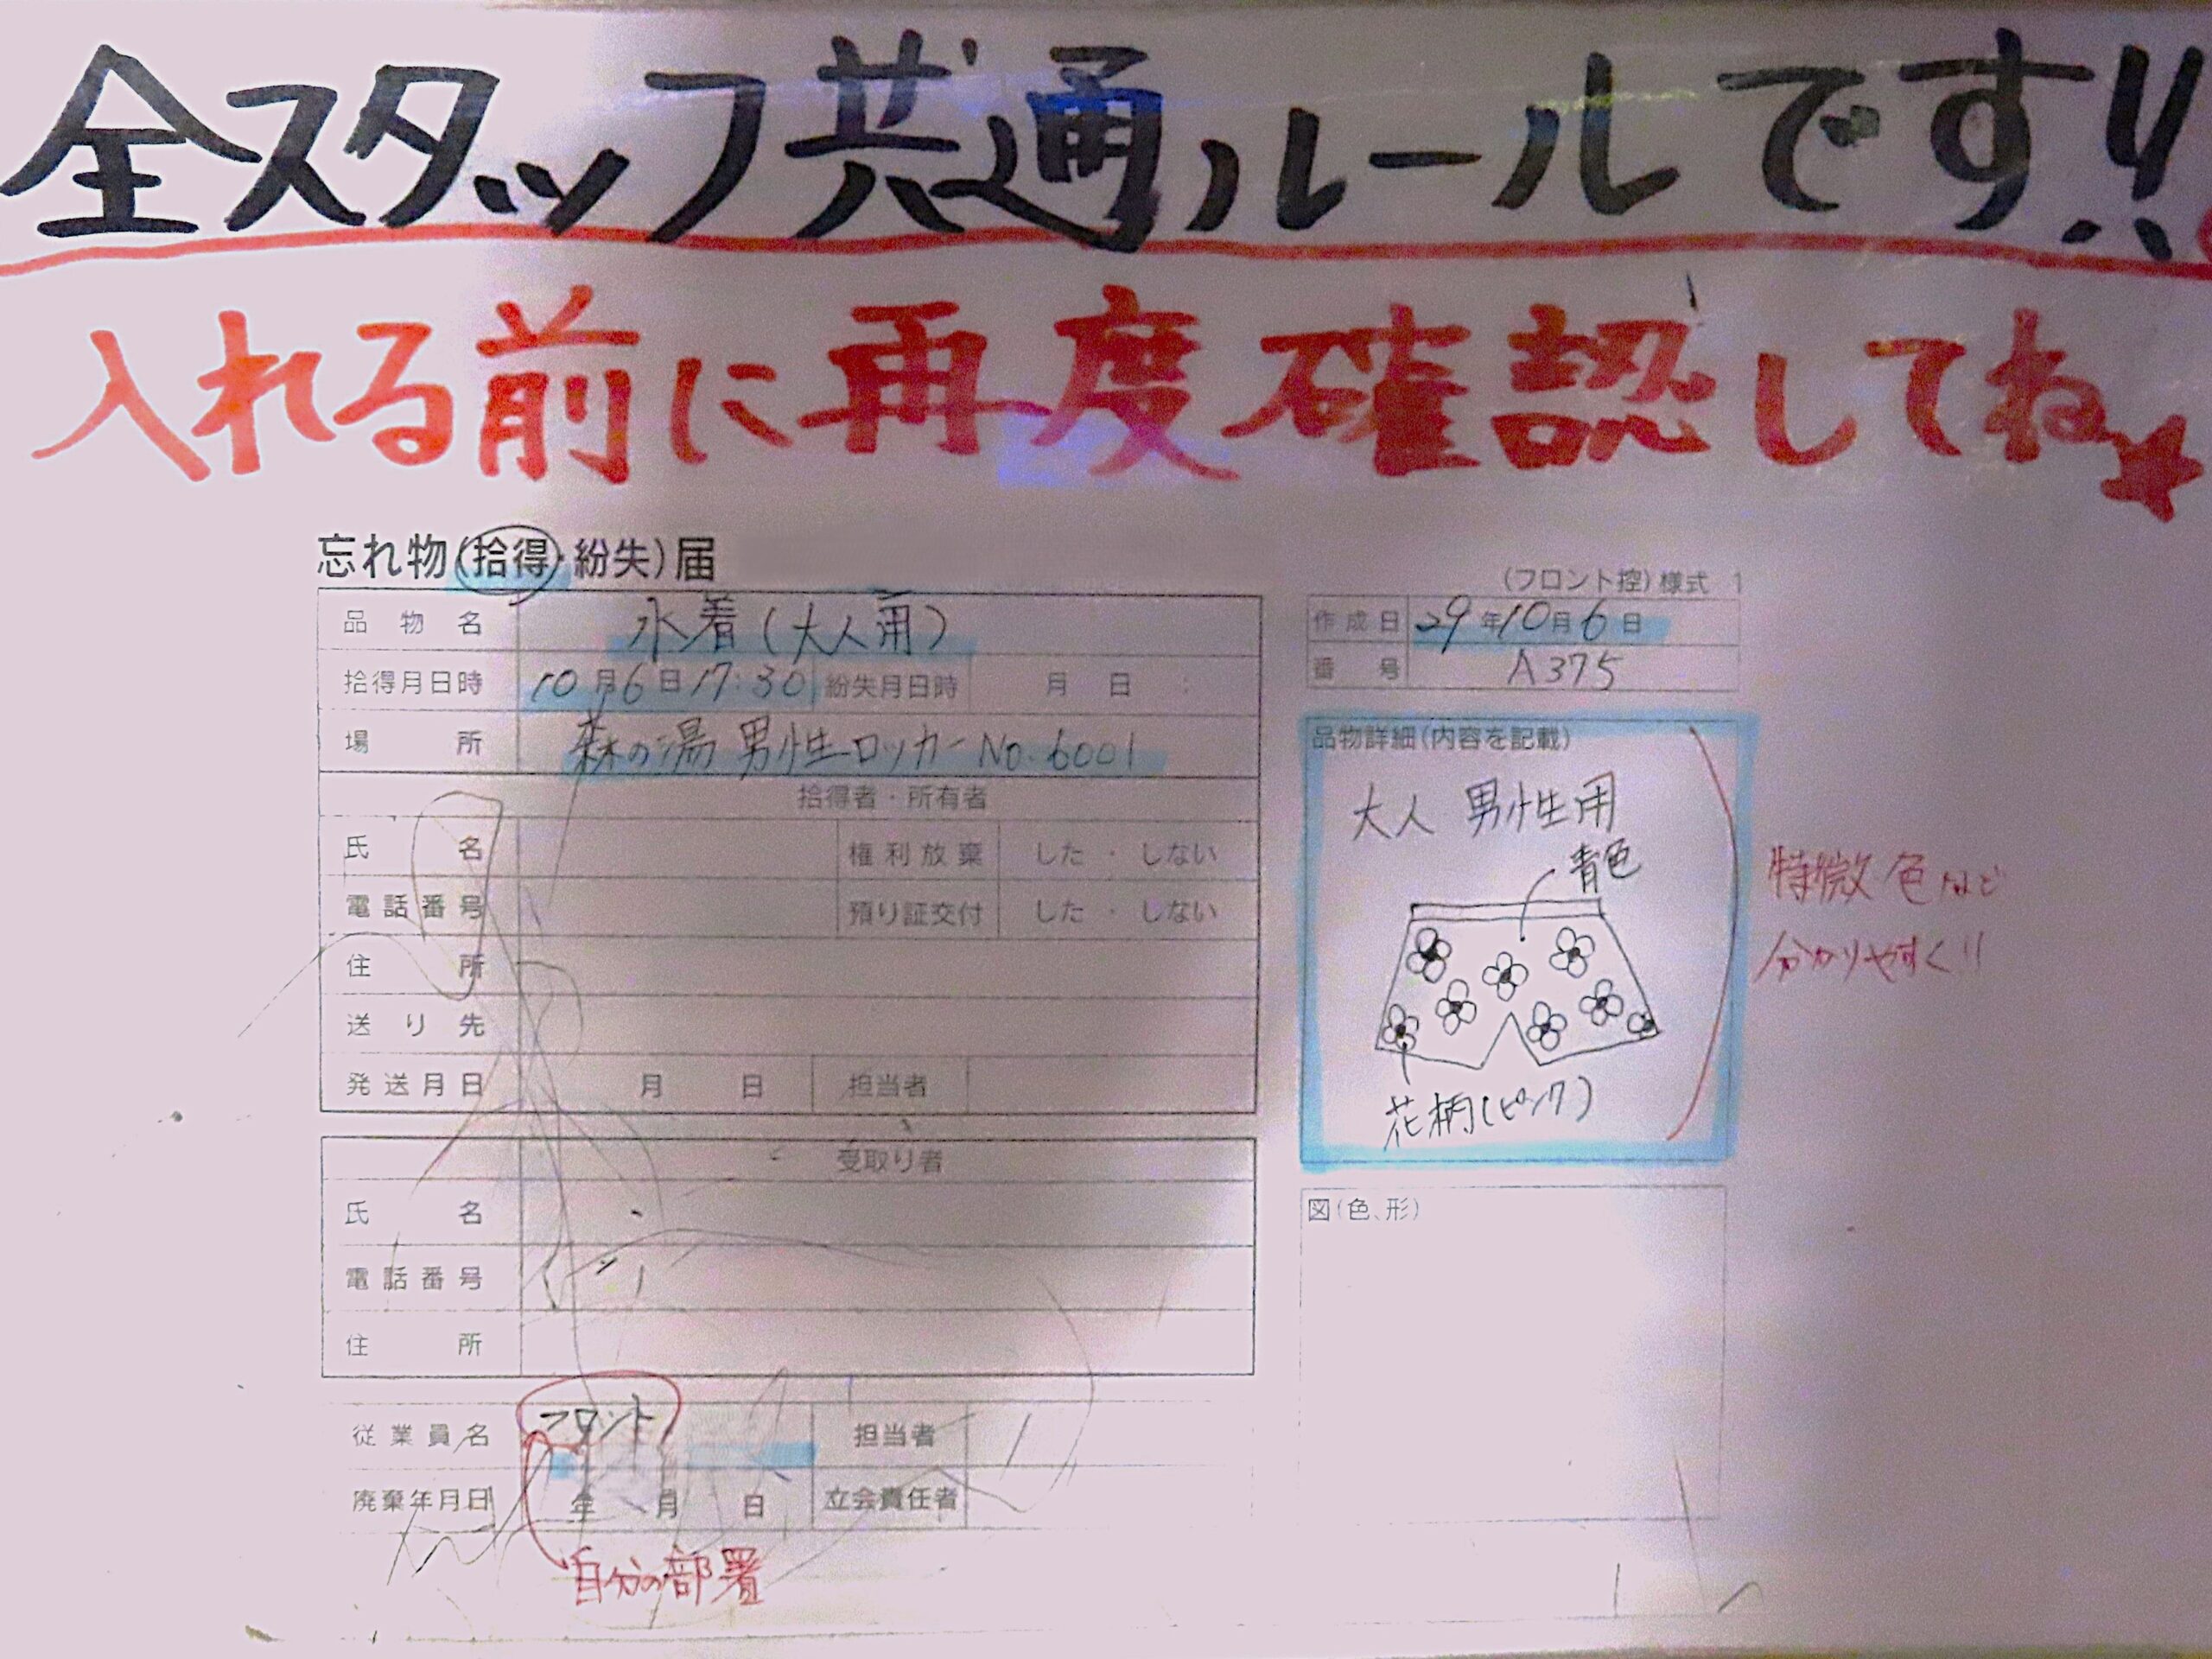 全スタッフ共通ルールです!!
入れる前に再度確認してね★
忘れ物(拾得・紛失)届
(フロント控)様式 1
作成日 29年10月6日
番号 A375
品物名 水着(大人用)
拾得月日時 10月6日17:30 紛失月日時 月 日 :
場所 森の湯 男性ロッカーNo.6001
拾得者・所有者
氏名 権利放棄 した・しない
電話番号 預り証交付 した・しない
住所
送り先
発送月日 月 日 担当者
受取り者
氏名
電話番号
住所
従業員名 フロント 担当者
廃棄年月日 年 月 日 立会責任者
自分の部署
品物詳細(内容を記載)
大人 男性用
青色
花柄(ピンク)
特徴・色など
分かりやすく!!
図(色、形)